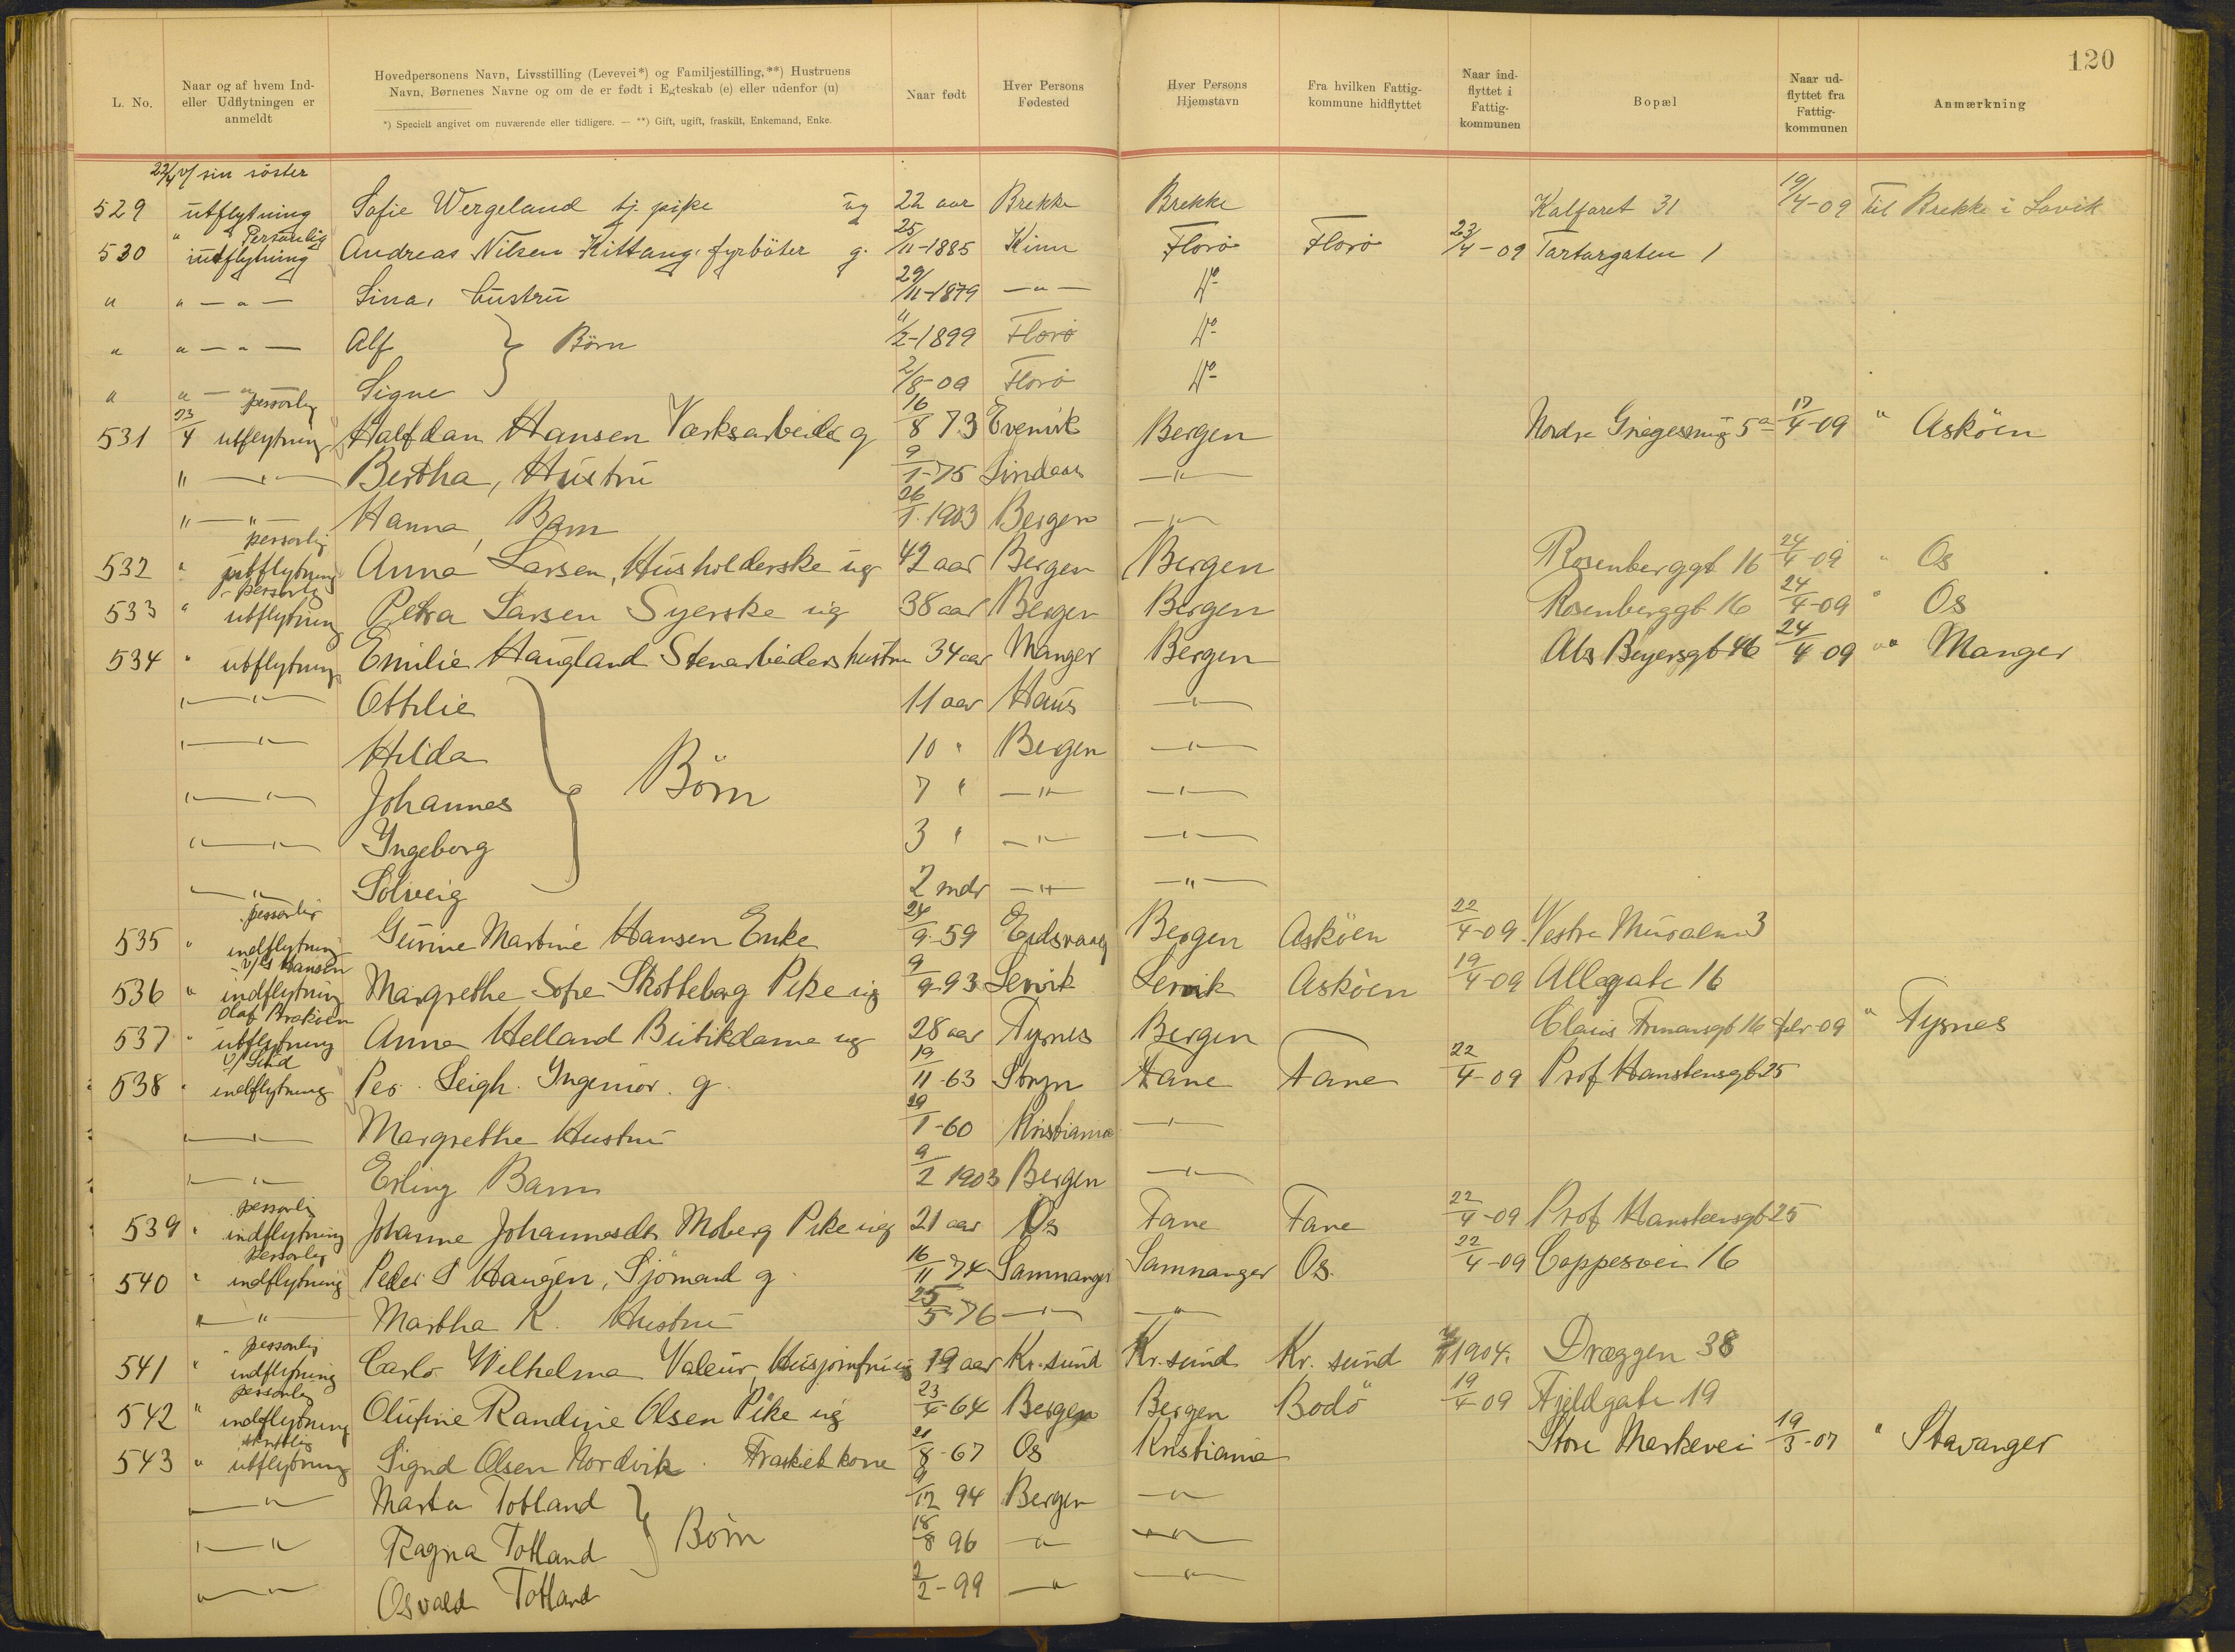 120
L. No.
Naar og af hvem Ind- eller Udflytningen er anmeldt
Hovedpersonens Navn, Livsstilling (Levevei*) og Familjestilling,**) Hustruens Navn, Børnenes Navne og om de er født i Egteskab (e) eller udenfor (u)
*) Specielt angivet om nuværende eller tidligere. — **) Gift, ugift, fraskilt, Enkemand, Enke.
Naar født
Hver Persons Fødested
Hver Persons Hjemstavn
Fra hvilken Fattigkommune hidflyttet
Naar indflyttet i Fattigkommunen
Bopæl
Naar udflyttet fra Fattigkommunen
Anmærkning
22/4 v/ sin söster
529 utflytning Sofie Wergeland tj. pike ug 22 aar Brekke Brekke Kalfaret 31 19/4-09 Til Brekke i Lavik
" Personlig
530 indflytning Andreas Nilsen Kittang, fyrböter g. 25/11-1885 Kinn Florö Florö 23/4-09 Tartargaten 1
" " — " — Lina, hustru 29/11-1879 — " — Do
" " — " — Alf } Börn 11/2-1899 Florö Do
" " — " — Signe 2/8-09 Florö Do
personlig
531 23/4 utflytning Halfdan Hansen Værksarbeider g 16/8 73 Evenvik Bergen Nordre 5a 17/4-09 " Asköen
" — " — Bertha, Hustru 9/1-75 Lindaas — " —
" — " — Hanna, Barn 26/1 1903 Bergen — " —
personlig
532 " utflytning Anna Larsen, Husholderske ug 42 aar Bergen Bergen Rosenberggt 16 24/4-09 " Os
personlig
533 " utflytning Petra Larsen Syerske ug 38 aar Bergen Bergen Rosenberggt 16 24/4-09 " Os
534 " utflytning Emilie Haugland Stenarbeiders hustru 34 aar Manger Bergen Abs Beyersgt 46 24/4 09 " Manger
" — " — Ottilie 11 aar Haus — " —
" — " — Hilda 10 " Bergen — " —
" — " — Johannes } Börn 7 " — " — — " —
" — " — Ingeborg 3 " — " — — " —
— " — Solveig 2 mdr — " — — " —
personlig
535 " indflytning Gurine Martine Hansen Enke 24/9-59 Eidsvaag Bergen Asköen 22/4-09 Vestre Muralm 3
v/ Hansen
536 " indflytning Margrethe Sofie Skotteberg Pike ug 9/9-93 Lervik Lervik Asköen 19/4-09 Allegate 16
Olaf
537 " utflytning Anna Helland Butikdame ug 28 aar Tysnes Bergen Claus 16 febr-09 " Tysnes
538 " indflytning Per Leigh. Ingeniör. g 19/11-63 Stryn Fane Fane 22/4-09 Prof Hanstensgt 25
— " — Margrethe Hustru 29/1-60 Kristiania — " —
— " — Erling Barn 9/2 1903 Bergen — " —
personlig
539 " indflytning Johanne Johannesdtr Moberg Pike ug 21 aar Os Fane Fane 22/4-09 Prof Hansteensgt 25
personlig
540 " indflytning Peder S Haugen, Sjömand g 16/11 74 Samnanger Samnanger Os 22/4-09 Coppesvei 16
" — " — Martha K. Hustru 25/5-76 — " — — " —
personlig
541 " indflytning Carla Wilhelma Valeur, Husjomfru ug 19 aar Kr. sund Kr. sund Kr. sund 1904. Dræggen 38
personlig
542 " indflytning Olufine Randine Olsen Pike ug 23/4-64 Bergen Bergen Bodö 19/4 09 Fjeldgate 19
skriftlig
543 " utflytning Sigrid Olsen Nordvik. Fraskilt kone 21/8-67 Os Kristiania Store Markevei 19/3-07 " Stavanger
— " — Marta Totland 9/12 94 Bergen — " —
— " — Ragna Totland } Börn 18/8 96 — " — — " —
— " — Osvald Totland 2/2-99 — " — — " —